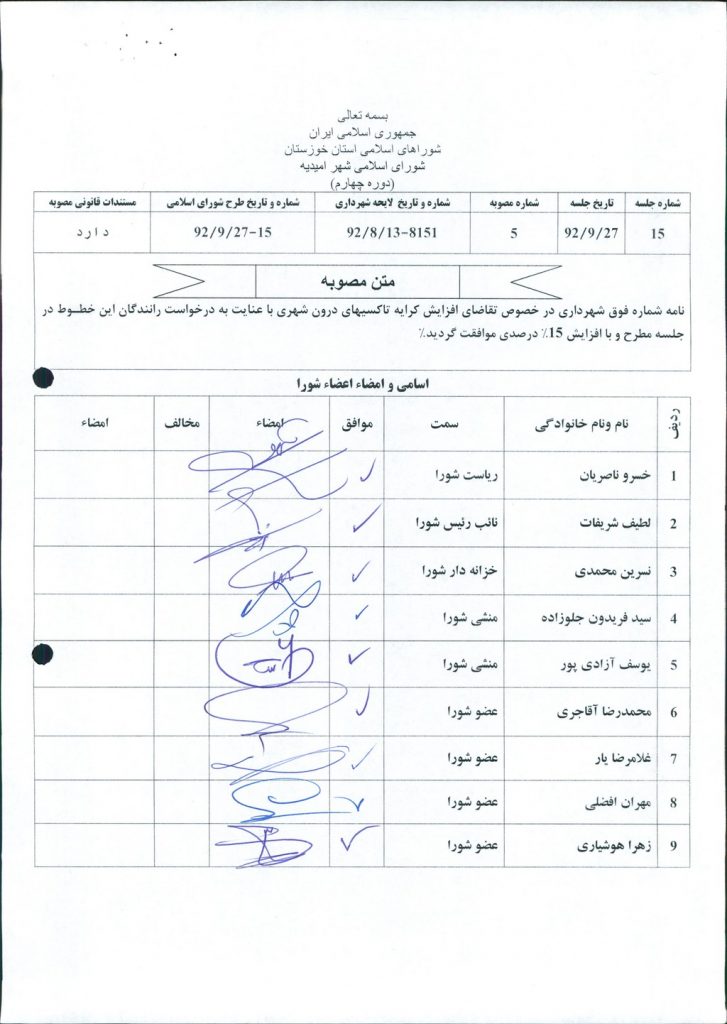 بسمه تعالی
جمهوری اسلامی ایران
شوراهای اسلامی استان خوزستان
شورای اسلامی شهر امیدیه
(دوره چهارم)
شماره جلسه تاریخ جلسه شماره مصوبه شماره و تاریخ لایحه شهرداری شماره و تاریخ طرح شورای اسلامی مستندات قانونی مصوبه
15 92/9/27 5 92/8/13-8151 92/9/27-15 دارد
متن مصوبه
نامه شماره فوق شهرداری در خصوص تقاضای افزایش کرایه تاکسیهای درون شهری با عنایت به درخواست رانندگان این خطوط در
جلسه مطرح و با افزایش 15٪ درصدی موافقت گردید٪
اسامی و امضاء اعضاء شورا
ردیف نام ونام خانوادگی سمت موافق امضاء مخالف امضاء
1 خسرو ناصریان ریاست شورا
2 لطیف شریفات نائب رئیس شورا
3 نسرین محمدی خزانه دار شورا
4 سید فریدون جلوزاده منشی شورا
5 یوسف آزادی پور منشی شورا
6 محمدرضا آقاجری عضو شورا
7 غلامرضا یار عضو شورا
8 مهران افضلی عضو شورا
9 زهرا هوشیاری عضو شورا